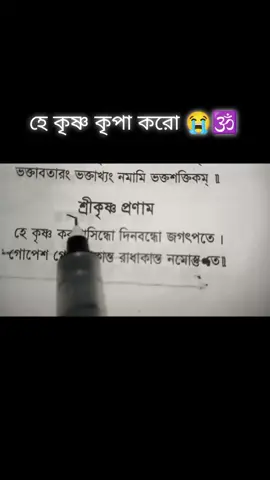 হে কৃষ্ণ কৃপা করো 😭🕉
ভক্তাবতারং ভক্তাখ্যং নমামি ভক্তশক্তিকম্ ॥
শ্রীকৃষ্ণ প্রণাম
হে কৃষ্ণ দিনবন্ধো জগৎপতে ।
গোপেশ রাধাকান্ত